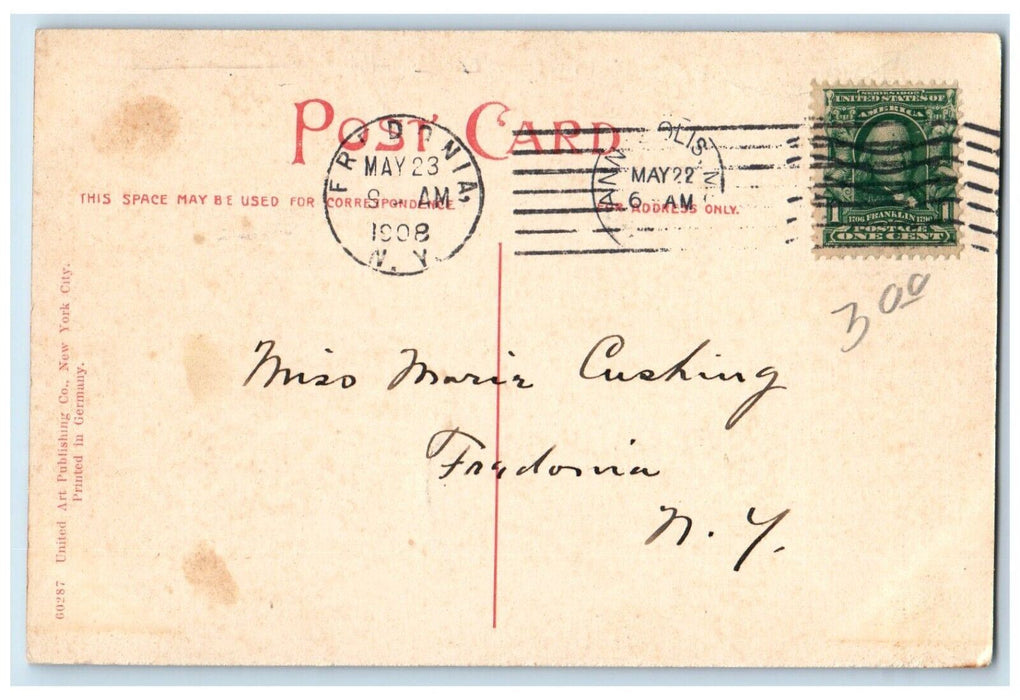 POST CARD
THIS SPACE MAY BE USED FOR CORRESPONDENCE
FOR ADDRESS ONLY.
FREDONIA,
MAY 23
AM
1908
N. Y.
MAY 22
6 AM
SERIES 1902
UNITED STATES OF
AMERICA
1 FRANKLIN 1
1706 1790
POSTAGE
ONE CENT
3 00
Miss Marie Cushing
Fredonia
N. Y.
60287 United Art Publishing Co., New York City.
Printed in Germany.